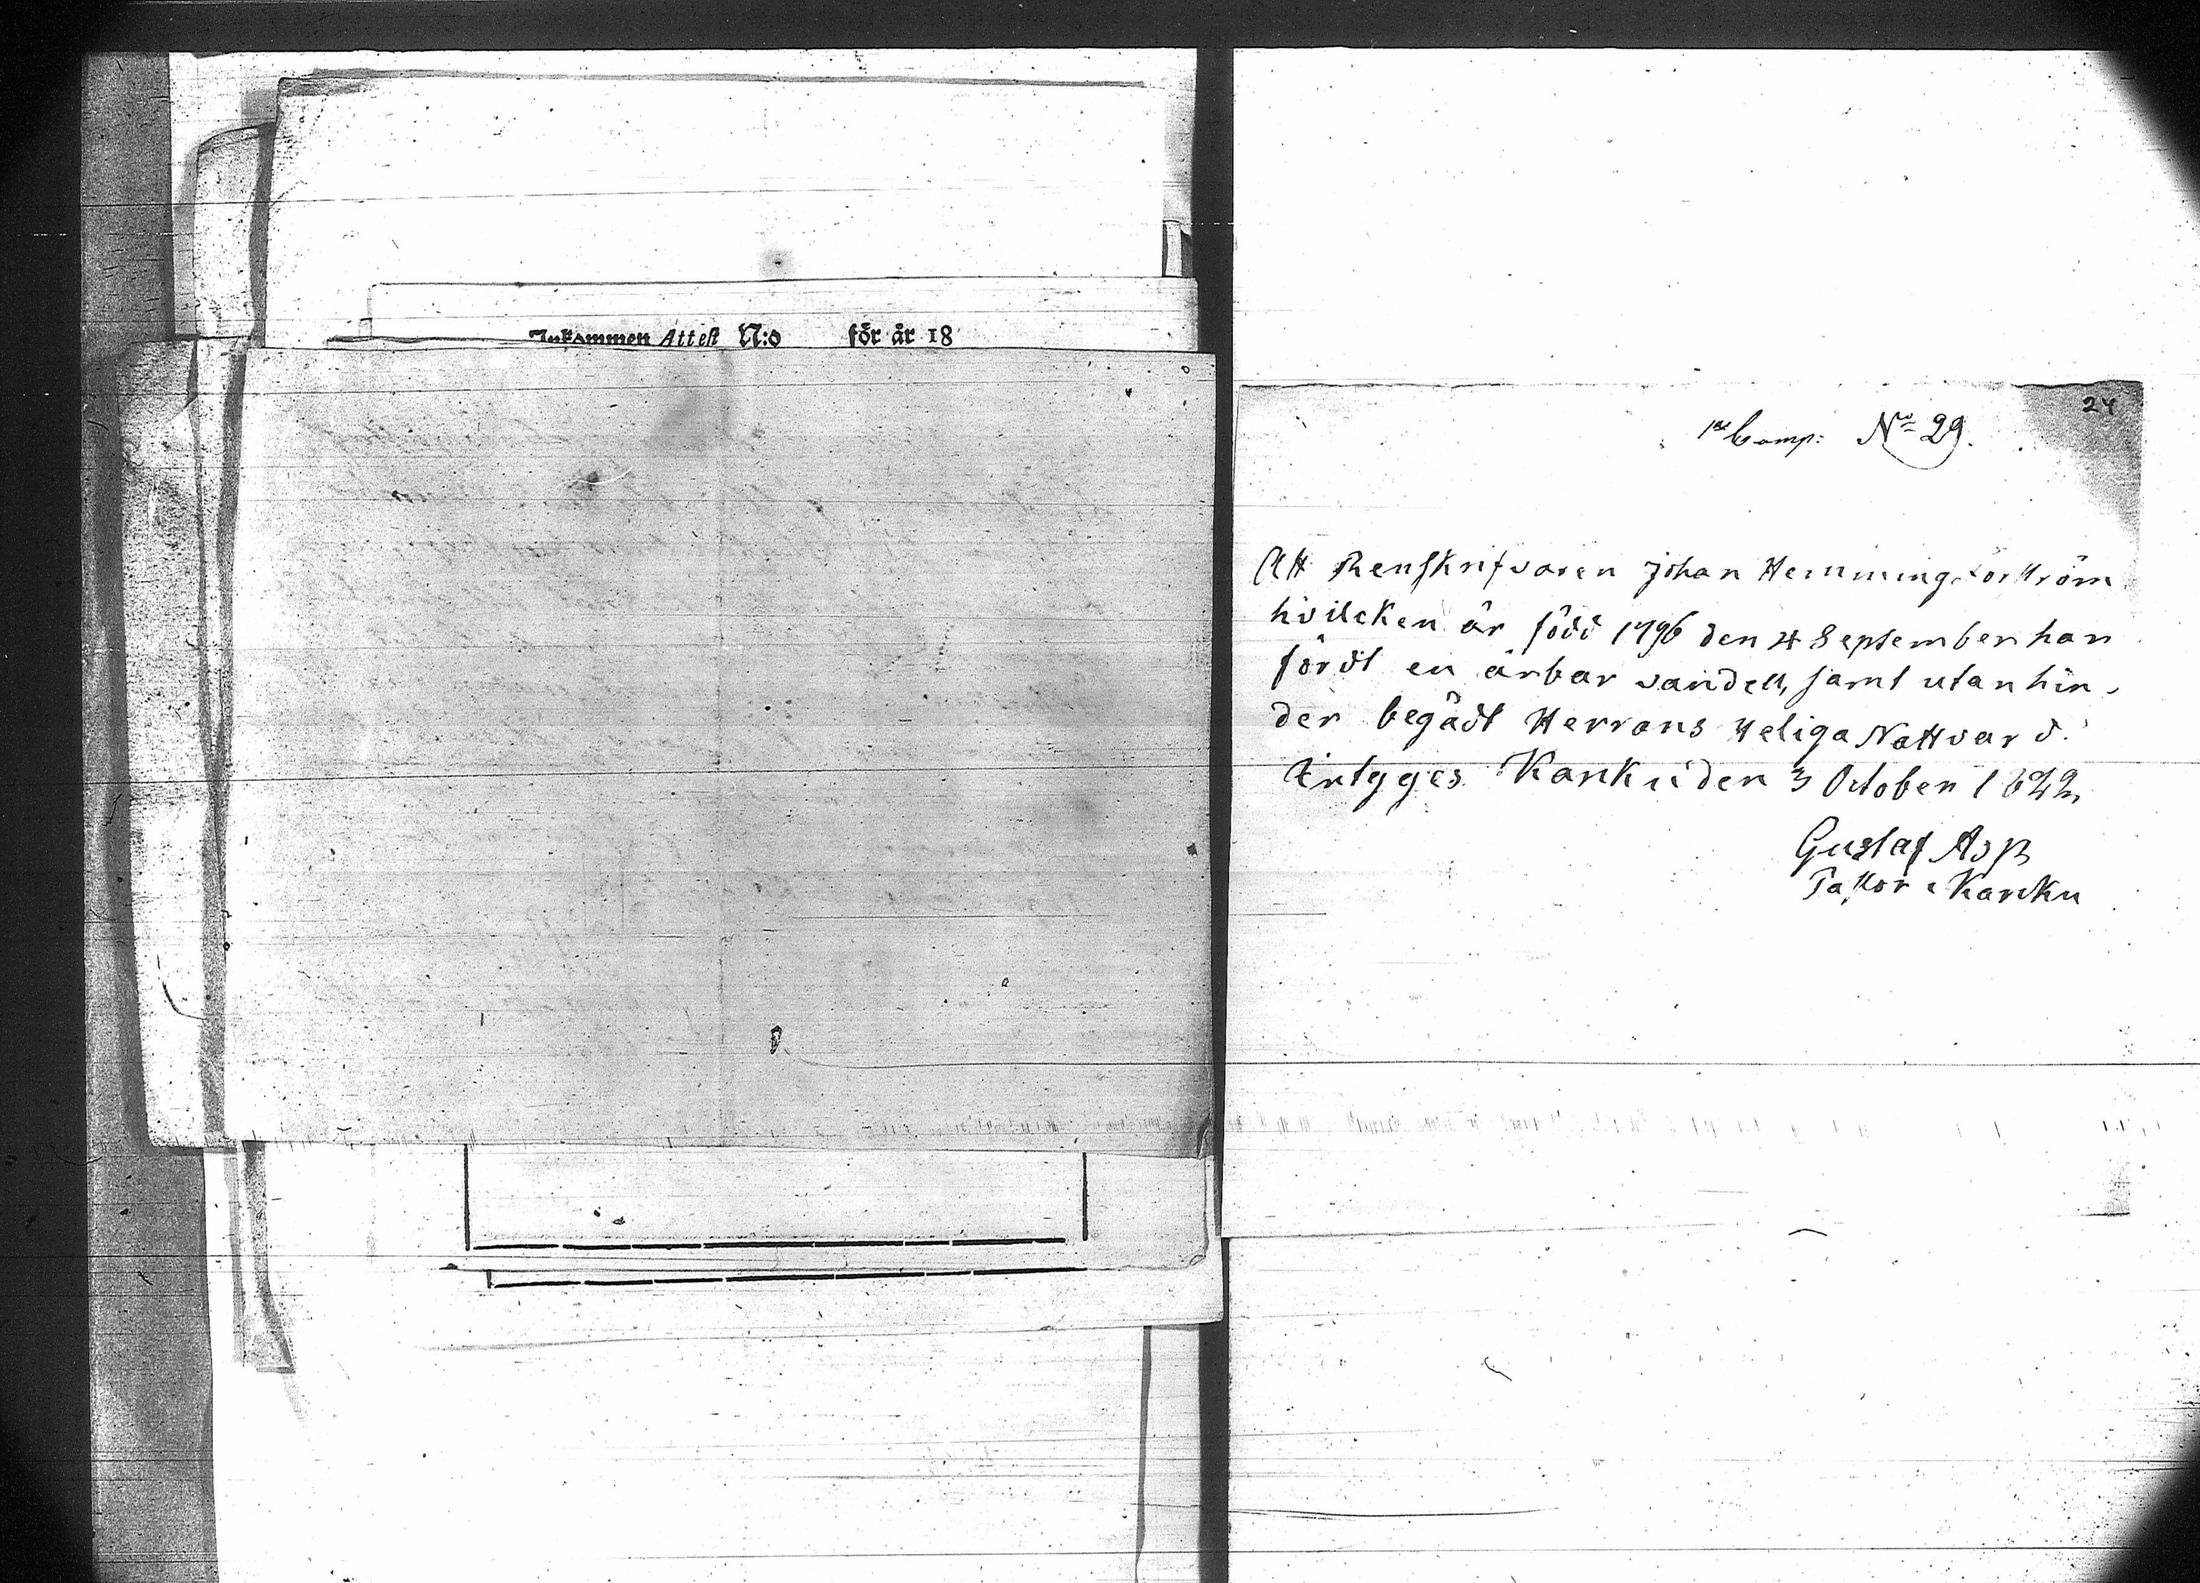 Inkommen Attest N:o för år 18
24
1sta Comp: No 29.
Att Renskrifvaren Johan Hemming Forström
hvilcken är född 1796 den 4 September har
fördt en ärbar vandel, samt utan hin-
der begådt Herrans Heliga Nattvard.
Intygges Karku den 3 October 1822
Gustaf Asp
Pastor i Karcku